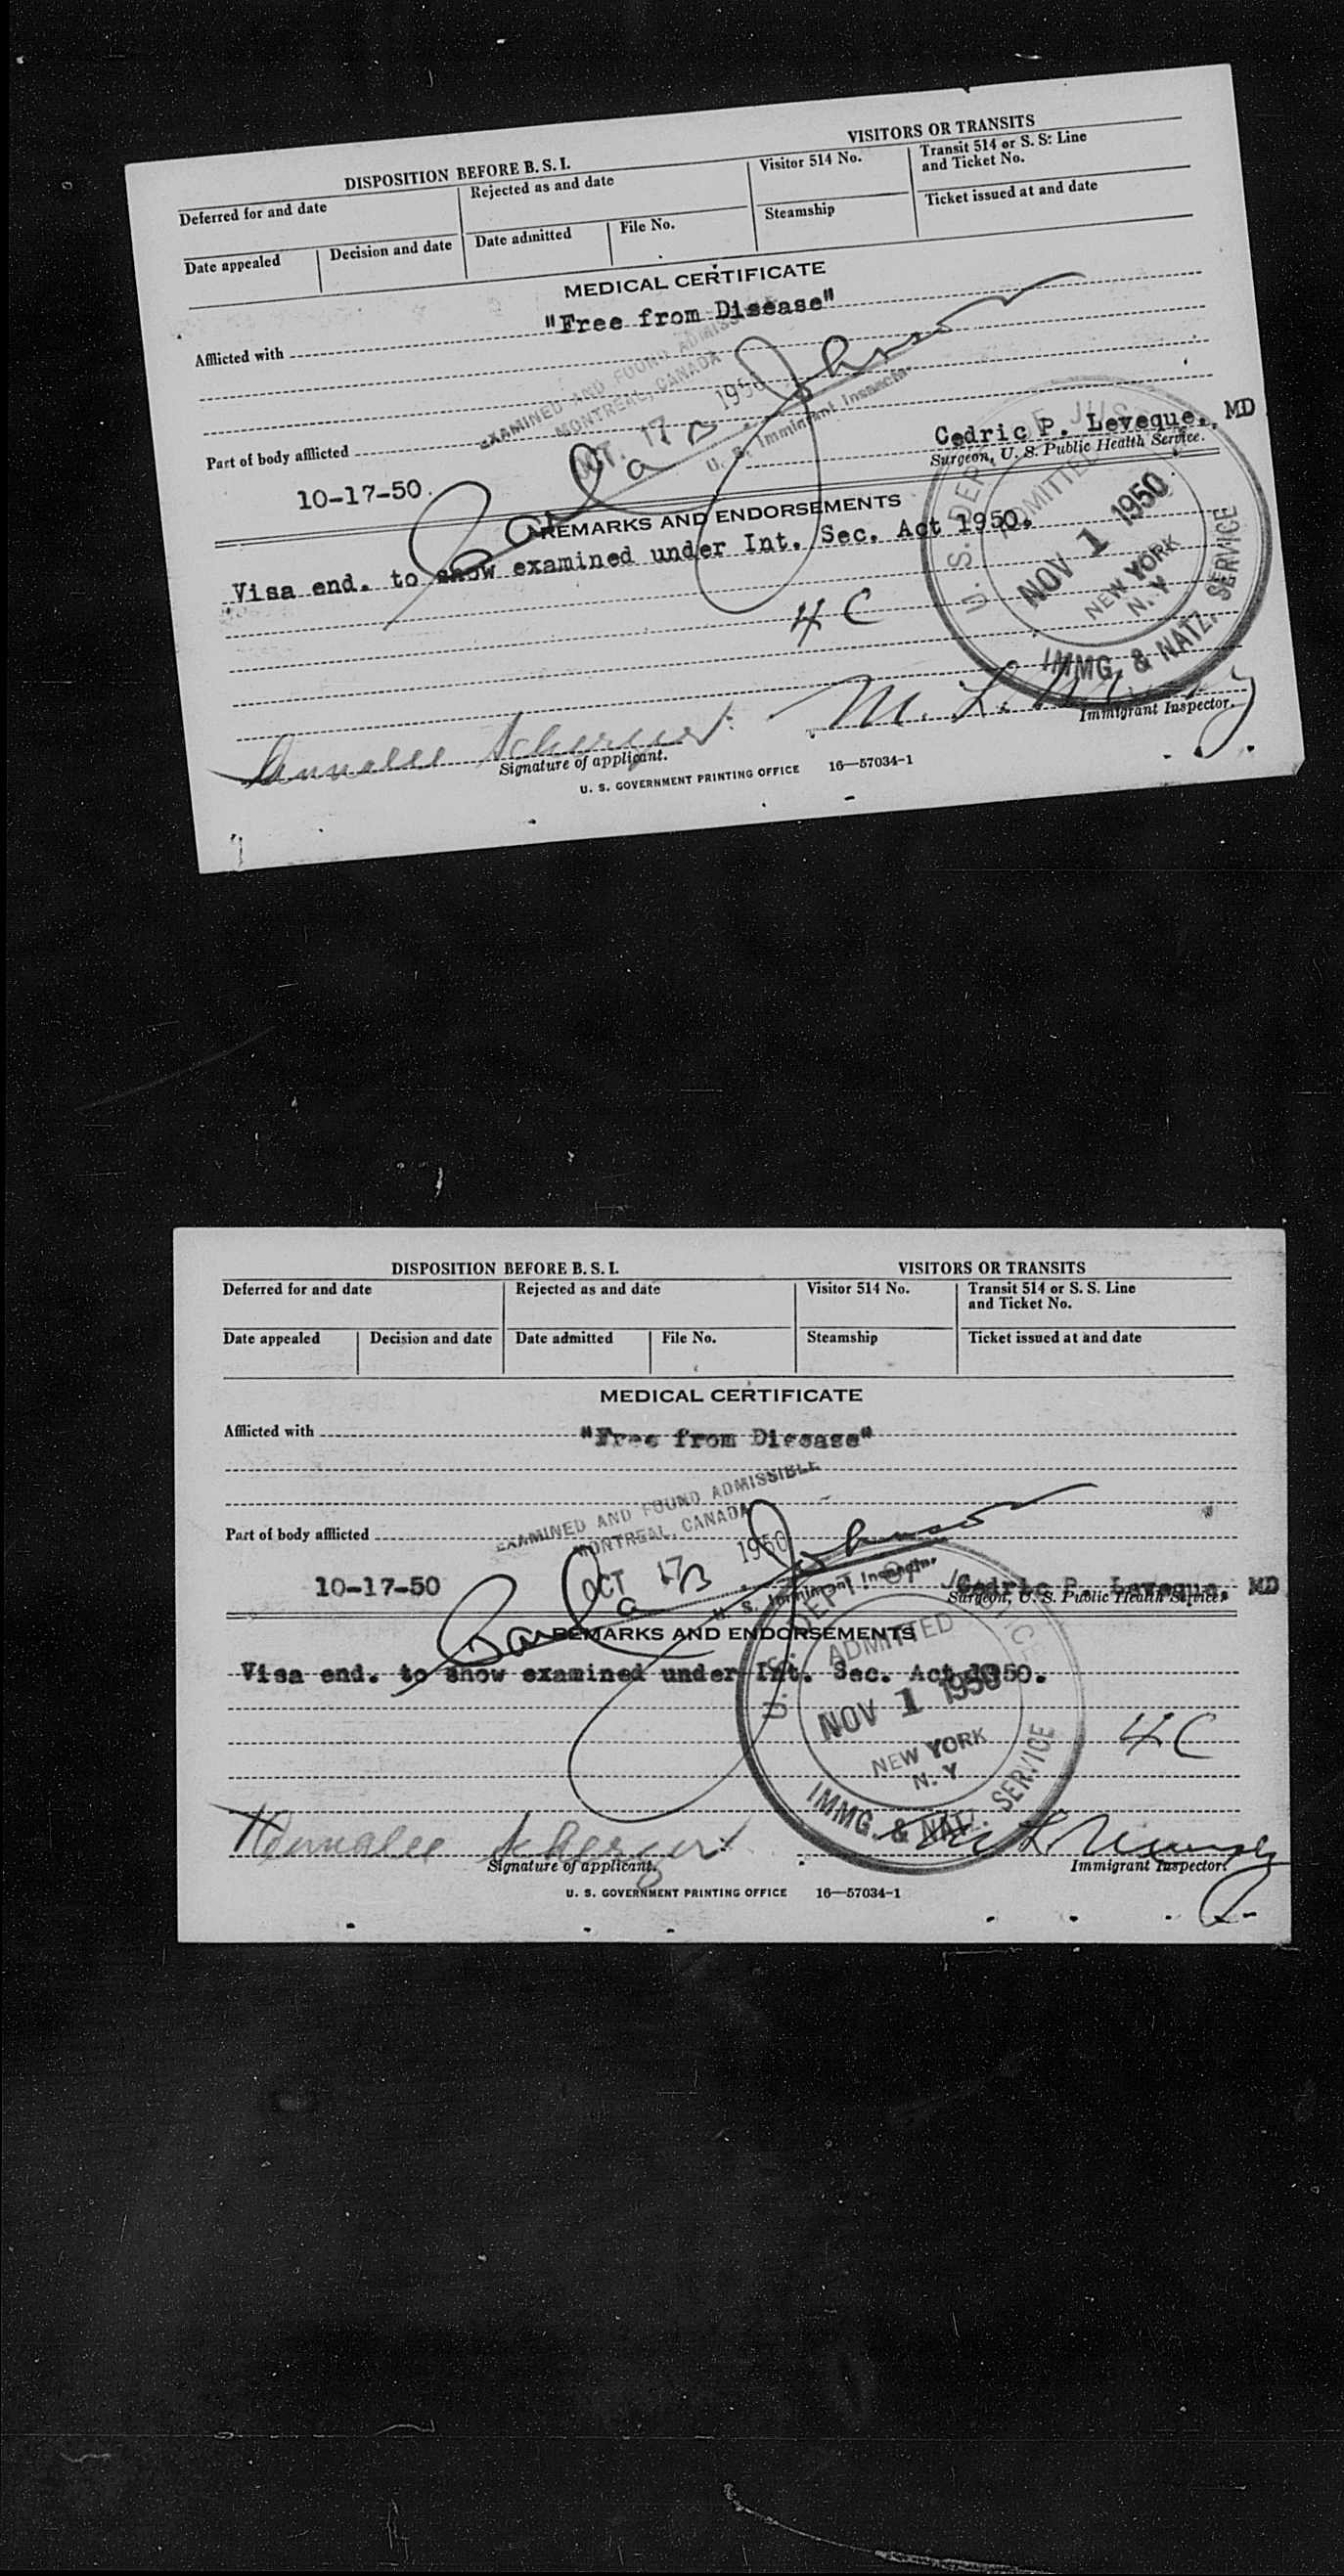 DISPOSITION BEFORE B. S. I.
VISITORS OR TRANSITS
Deferred for and date
Rejected as and date
Visitor 514 No.
Transit 514 or S. S. Line
and Ticket No.
Date appealed
Decision and date
Date admitted
File No.
Steamship
Ticket issued at and date
MEDICAL CERTIFICATE
Afflicted with "Free from Disease"
EXAMINED AND FOUND ADMISS
MONTREAL, CANADA
OCT. 17 1950
Johnson
U. S. Immigrant Inspector
Part of body afflicted
Cedric P. Leveque, MD
Surgeon, U. S. Public Health Service.
10-17-50.
REMARKS AND ENDORSEMENTS
Visa end. to show examined under Int. Sec. Act 1950.
U. S. DEPT. OF JUS
ADMITTED
NOV 1 1950
NEW YORK
N. Y.
IMMG. & NATZ. SERVICE
4 C
Annalee
M. L.
Signature of applicant.
Immigrant Inspector.
U. S. GOVERNMENT PRINTING OFFICE 16—57034-1
DISPOSITION BEFORE B. S. I.
VISITORS OR TRANSITS
Deferred for and date
Rejected as and date
Visitor 514 No.
Transit 514 or S. S. Line
and Ticket No.
Date appealed
Decision and date
Date admitted
File No.
Steamship
Ticket issued at and date
MEDICAL CERTIFICATE
Afflicted with "Free from Disease"
EXAMINED AND FOUND ADMISSIBLE
MONTREAL, CANADA
OCT 17 1950
Johnson
U. S. Immigrant Inspector.
Part of body afflicted
10-17-50
Cedric P. Leveque, MD
Surgeon, U. S. Public Health Service.
REMARKS AND ENDORSEMENTS
Visa end. to show examined under Int. Sec. Act 1950.
U. S. DEPT. OF JUSTICE
ADMITTED
NOV 1 1950
NEW YORK
N. Y
IMMG. & NATZ. SERVICE
4 C
Annalee
Signature of applicant.
Immigrant Inspector.
U. S. GOVERNMENT PRINTING OFFICE 16—57034-1